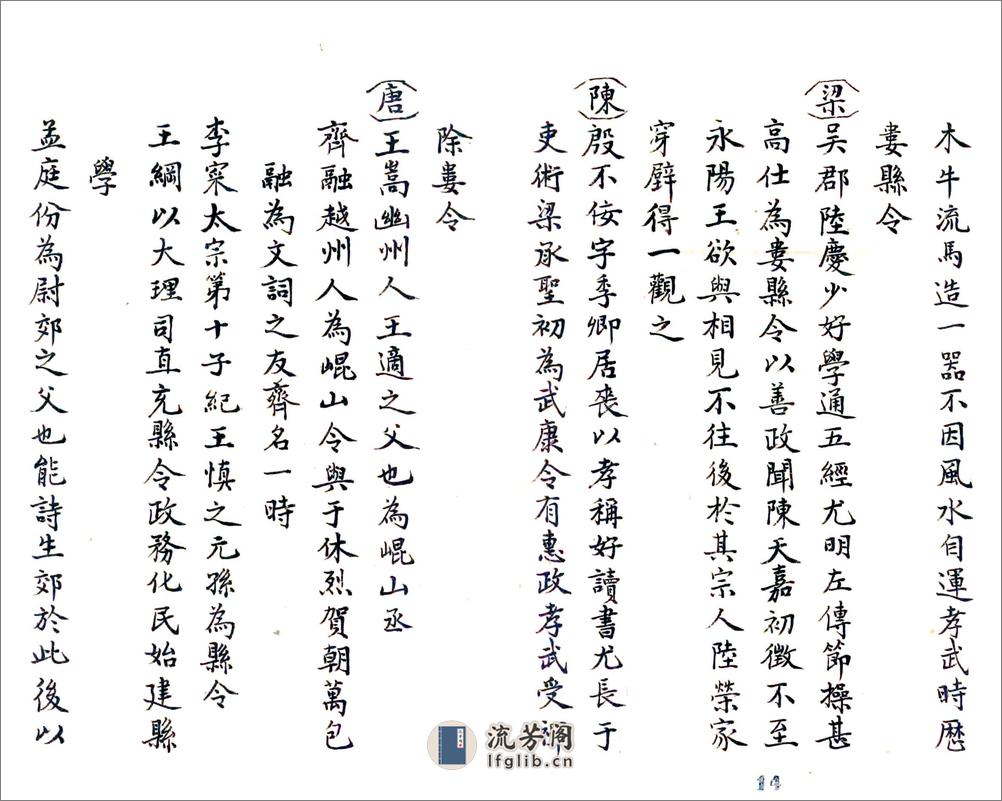 木牛流馬造一器不因風水自運孝武時歷
婁縣令
〔梁〕吴郡陸慶少好學通五經尤明左傳節操甚
高仕為婁縣令以善政聞陳天嘉初徵不至
永陽王欲與相見不往後於其宗人陸榮家
穿壁得一觀之
〔陳〕殷不佞字季卿居喪以孝稱好讀書尤長于
吏術梁承聖初為武康令有惠政孝武受禪
除婁令
〔唐〕王嵩幽州人王適之父也為崐山丞
齊融越州人為崐山令與于休烈賀朝萬包
融為文詞之友齊名一時
李寀太宗第十子紀王慎之元孫為縣令
王綱以大理司直充縣令政務化民始建縣
學
孟庭份為尉郊之父也能詩生郊於此後以
流芳阁
lfglib.cn
14